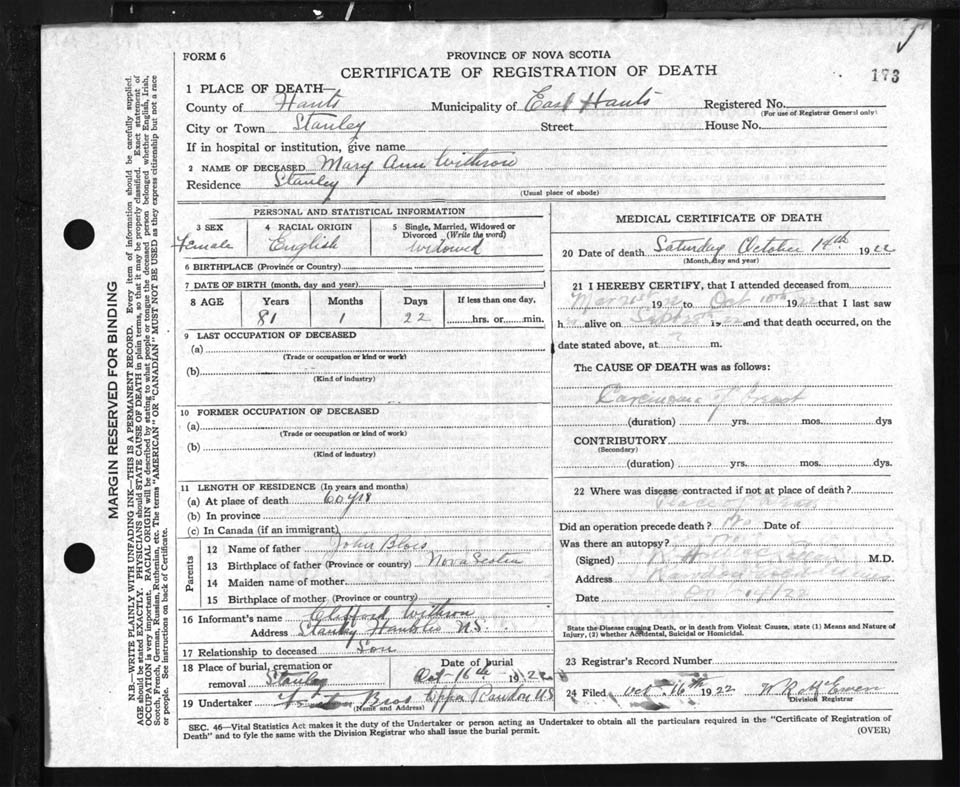 FORM 6
PROVINCE OF NOVA SCOTIA
CERTIFICATE OF REGISTRATION OF DEATH
173
1 PLACE OF DEATH—
County of Hants Municipality of East Hants Registered No.
(For use of Registrar General only)
City or Town Stanley Street House No.
If in hospital or institution, give name
2 NAME OF DECEASED Mary Ann Withrow
Residence Stanley
(Usual place of abode)
PERSONAL AND STATISTICAL INFORMATION
3 SEX 4 RACIAL ORIGIN 5 Single, Married, Widowed or Divorced (Write the word)
Female English Widowed
6 BIRTHPLACE (Province or Country)
7 DATE OF BIRTH (month, day and year)
8 AGE Years Months Days If less than one day,
81 1 22 hrs. or min.
9 LAST OCCUPATION OF DECEASED
(a)
(Trade or occupation or kind or work)
(b)
(Kind of industry)
10 FORMER OCCUPATION OF DECEASED
(a)
(Trade or occupation or kind of work)
(b)
(Kind of industry)
11 LENGTH OF RESIDENCE (In years and months)
(a) At place of death 60 yrs
(b) In province
(c) In Canada (if an immigrant)
Parents
12 Name of father John Blois
13 Birthplace of father (Province or country) Nova Scotia
14 Maiden name of mother
15 Birthplace of mother (Province or country)
16 Informant's name Clifford Withrow
Address Stanley Hants Co N.S.
17 Relationship to deceased Son
18 Place of burial, cremation or removal Stanley
Date of burial
Oct 16th 1922
19 Undertaker Bros Upper Rawdon NS
(Name and Address)
MEDICAL CERTIFICATE OF DEATH
20 Date of death Saturday October 14th 1922
(Month, day and year)
21 I HEREBY CERTIFY, that I attended deceased from
19 to Oct 10th 19 that I last saw
h alive on 19 and that death occurred, on the
date stated above, at ? m.
The CAUSE OF DEATH was as follows:
Carcinoma of breast
(duration) yrs. mos. dys
CONTRIBUTORY
(Secondary)
(duration) yrs. mos. dys.
22 Where was disease contracted if not at place of death?
Place of
Did an operation precede death? No Date of
Was there an autopsy? No
(Signed) M.D.
Address Rawdon Gold Mines
Date Oct 14/22
State the Disease causing Death, or in death from Violent Causes, state (1) Means and Nature of
Injury, (2) whether Accidental, Suicidal or Homicidal.
23 Registrar's Record Number
24 Filed Oct 16th 1922 W R McEwen
Division Registrar
SEC. 46—Vital Statistics Act makes it the duty of the Undertaker or person acting as Undertaker to obtain all the particulars required in the "Certificate of Registration of
Death" and to fyle the same with the Division Registrar who shall issue the burial permit.
(OVER)
MARGIN RESERVED FOR BINDING
N.B.—WRITE PLAINLY WITH UNFADING INK—THIS IS A PERMANENT RECORD. Every item of information should be carefully supplied.
AGE should be stated EXACTLY. PHYSICIANS should STATE CAUSE OF DEATH in plain terms, so that it may be properly classified. Exact statement of
OCCUPATION is very important. RACIAL ORIGIN will be described by stating to what people or tongue the deceased person belonged whether English, Irish,
Scotch, French, German, Russian, Ruthenian, etc. The terms "AMERICAN" OR "CANADIAN" MUST NOT BE USED as they express citizenship but not a race
or people. See instructions on back of Certificate.